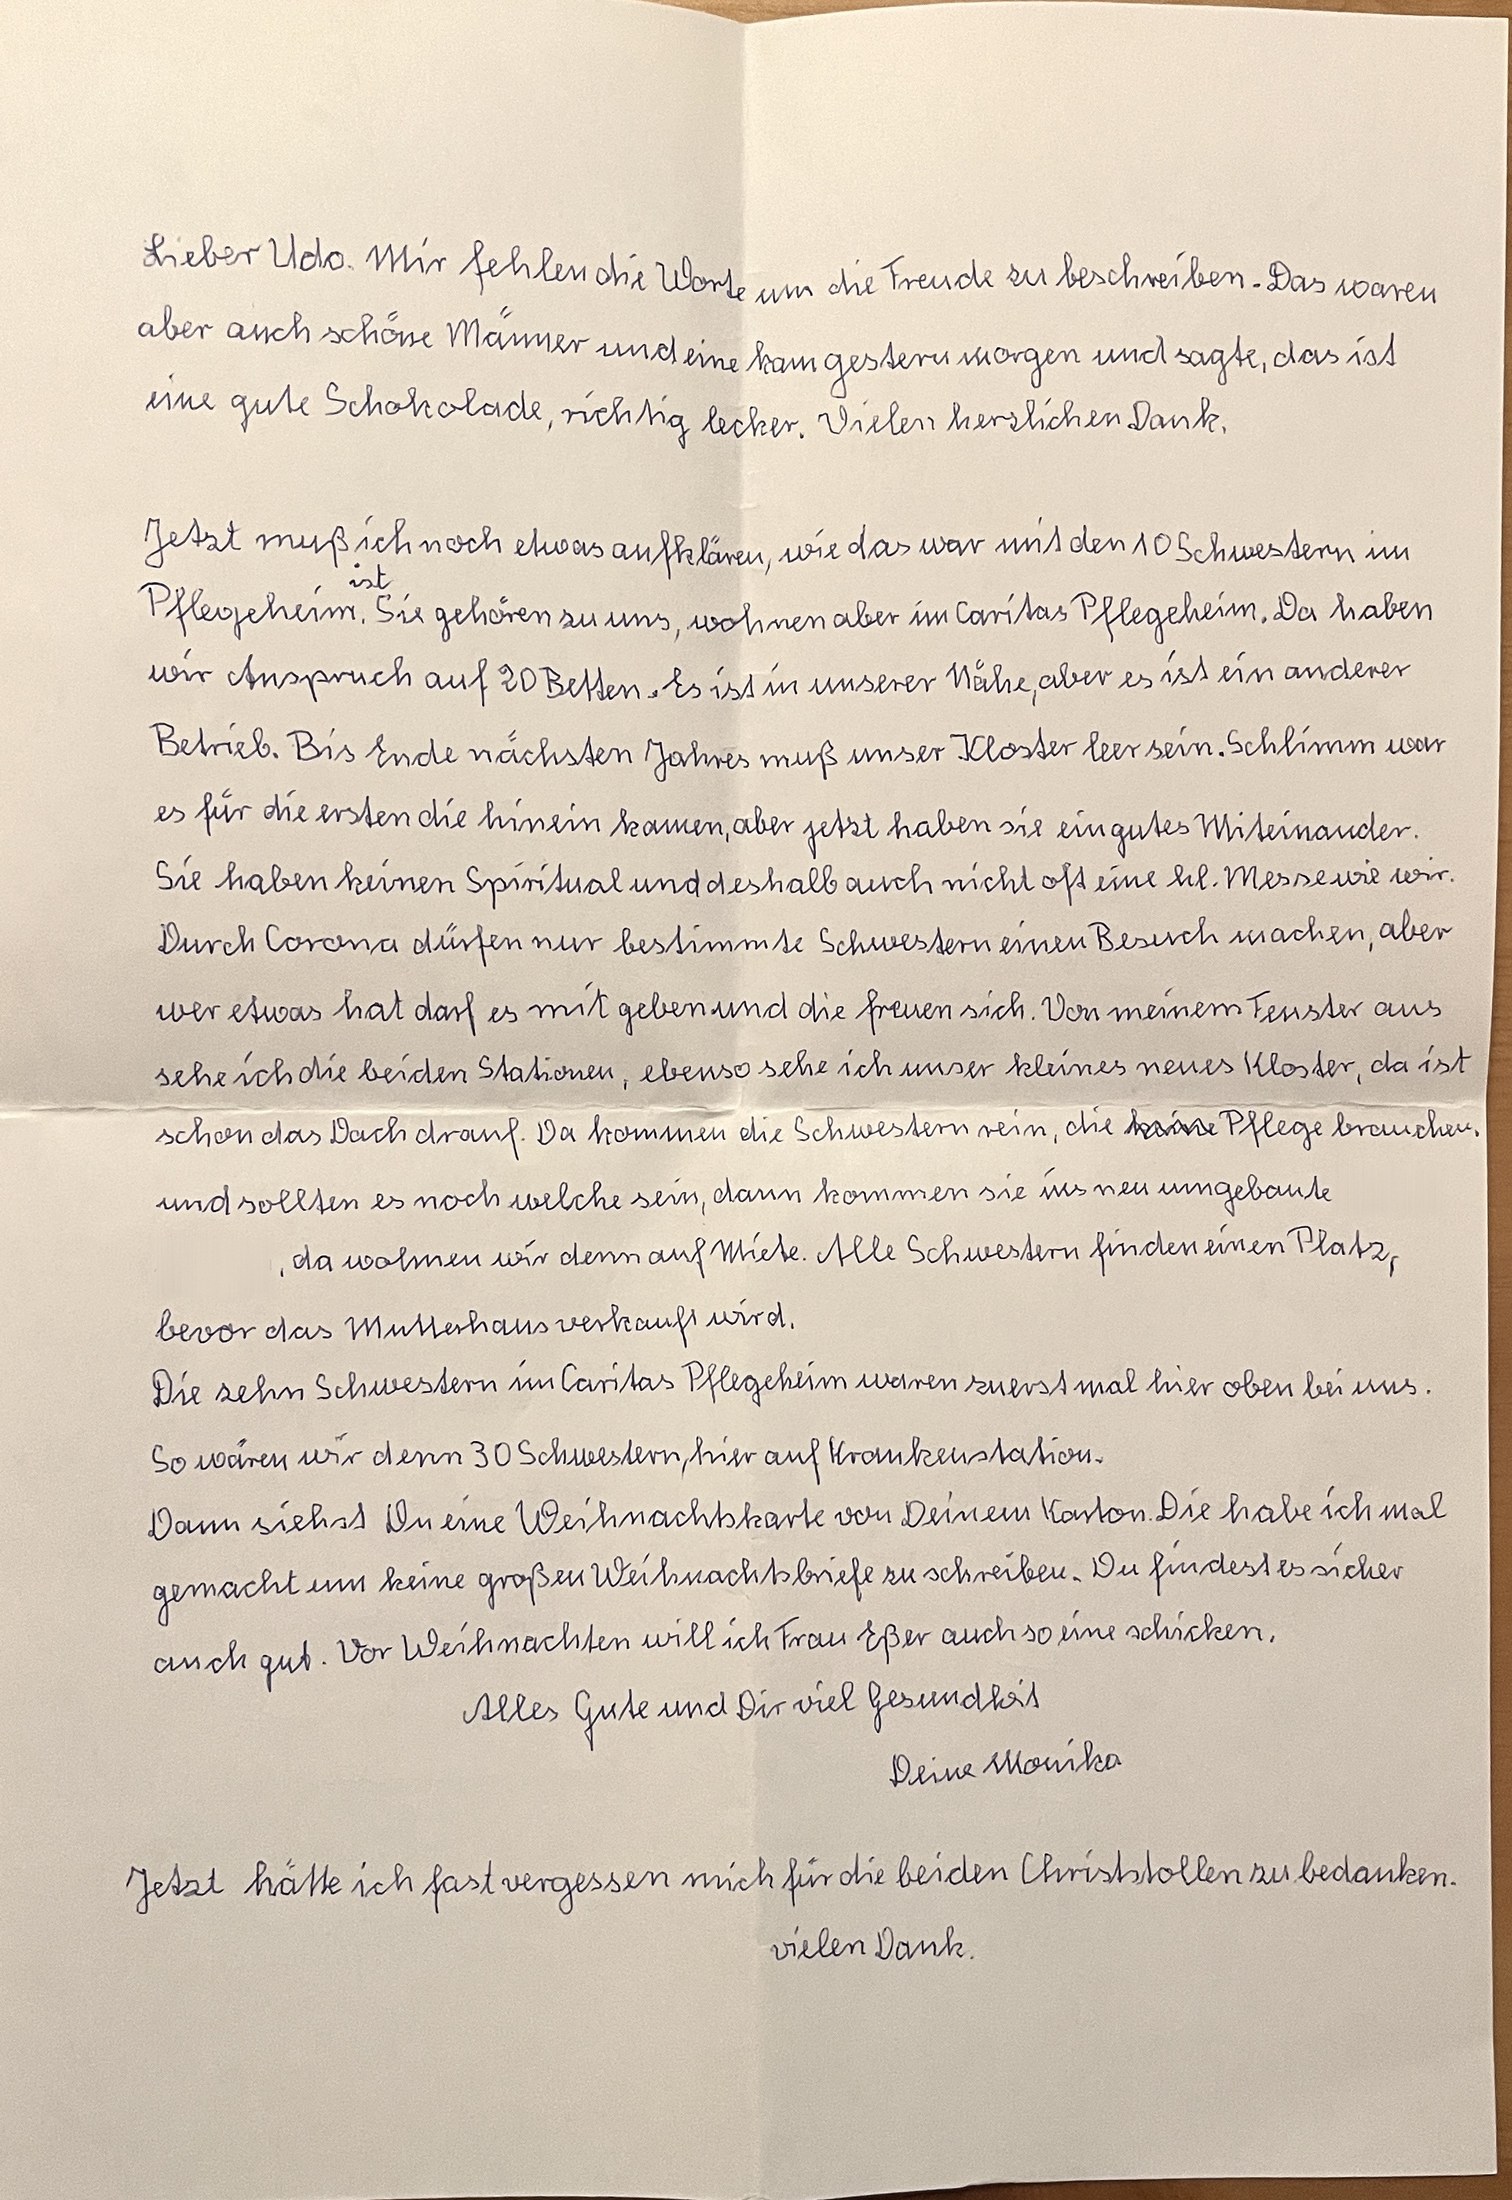 Lieber Udo. Mir fehlen die Worte um die Freude zu beschreiben. Das waren
aber auch schöne Männer und eine kam gestern morgen und sagte, das ist
eine gute Schokolade, richtig lecker. Vielen herzlichen Dank.
Jetzt muß ich noch etwas aufklären, wie das war mit den 10 Schwestern im
ist
Pflegeheim. Sie gehören zu uns, wohnen aber im Caritas Pflegeheim. Da haben
wir Anspruch auf 20 Betten. Es ist in unserer Nähe, aber es ist ein anderer
Betrieb. Bis Ende nächsten Jahres muß unser Kloster leer sein. Schlimm war
es für die ersten die hinein kamen, aber jetzt haben sie ein gutes Miteinander.
Sie haben keinen Spiritual und deshalb auch nicht oft eine hl. Messe wie wir.
Durch Corona dürfen nur bestimmte Schwestern einen Besuch machen, aber
wer etwas hat darf es mit geben und die freuen sich. Von meinem Fenster aus
sehe ich die beiden Stationen, ebenso sehe ich unser kleines neues Kloster, da ist
schon das Dach drauf. Da kommen die Schwestern rein, die keine Pflege brauchen.
und sollten es noch welche sein, dann kommen sie ins neu umgebaute
, da wohnen wir denn auf Miete. Alle Schwestern finden einen Platz,
bevor das Mutterhaus verkauft wird.
Die zehn Schwestern im Caritas Pflegeheim waren zuerst mal hier oben bei uns.
So wären wir denn 30 Schwestern, hier auf Krankenstation.
Dann siehst Du eine Weihnachtskarte von Deinem Karton. Die habe ich mal
gemacht um keine großen Weihnachtsbriefe zu schreiben. Du findest es sicher
auch gut. Vor Weihnachten will ich Frau Eßer auch so eine schicken.
Alles Gute und Dir viel Gesundheit
Deine Monika
Jetzt hätte ich fast vergessen mich für die beiden Christstollen zu bedanken.
vielen Dank.